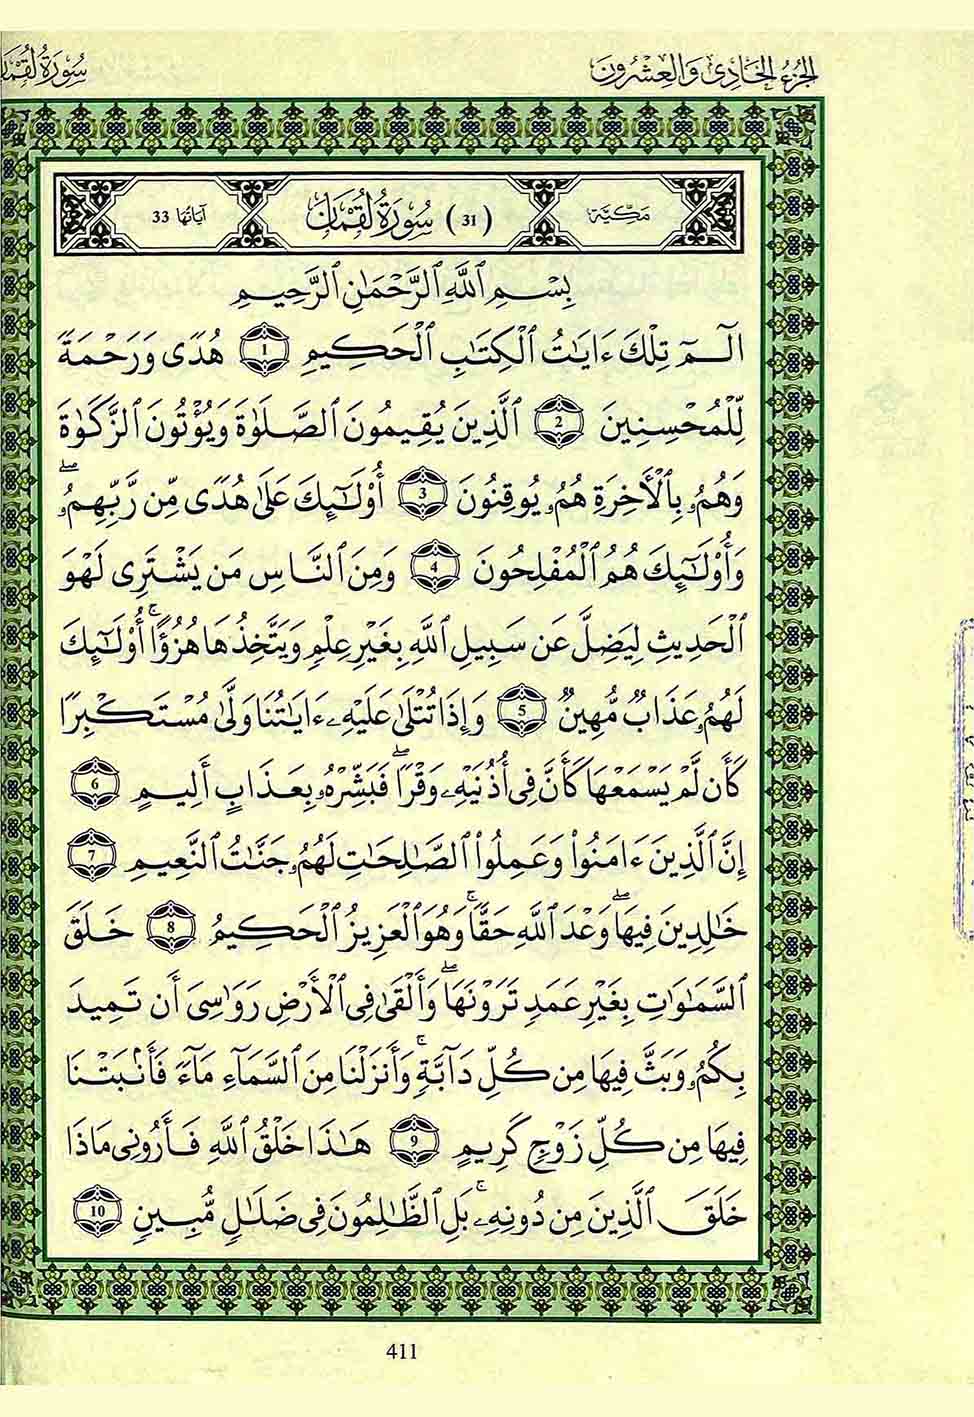 الجزء الحادى والعشرون
سورة لقمان
مكية
(31) سورة لقمان
آياتها 33
بِسْمِ ٱللَّهِ ٱلرَّحْمَٰنِ ٱلرَّحِيمِ
الٓمٓ تِلْكَ ءَايَٰتُ ٱلْكِتَٰبِ ٱلْحَكِيمِ 1 هُدًى وَرَحْمَةً
لِّلْمُحْسِنِينَ 2 ٱلَّذِينَ يُقِيمُونَ ٱلصَّلَوٰةَ وَيُؤْتُونَ ٱلزَّكَوٰةَ
وَهُمُۥ بِٱلْأَخِرَةِ هُمُۥ يُوقِنُونَ 3 أُوْلَٰٓئِكَ عَلَىٰ هُدًى مِّن رَّبِّهِمُۥۖ
وَأُوْلَٰٓئِكَ هُمُ ٱلْمُفْلِحُونَ 4 وَمِنَ ٱلنَّاسِ مَن يَشْتَرِى لَهْوَ
ٱلْحَدِيثِ لِيَضِلَّ عَن سَبِيلِ ٱللَّهِ بِغَيْرِ عِلْمٍ وَيَتَّخِذُهَا هُزُؤًاۚ أُوْلَٰٓئِكَ
لَهُمُۥ عَذَابٌ مُّهِينٌ 5 وَإِذَا تُتْلَىٰ عَلَيْهِۦ ءَايَٰتُنَا وَلَّىٰ مُسْتَكْبِرًا
كَأَن لَّمْ يَسْمَعْهَا كَأَنَّ فِى أُذُنَيْهِۦ وَقْرًاۖ فَبَشِّرْهُۥ بِعَذَابٍ أَلِيمٍ 6
إِنَّ ٱلَّذِينَ ءَامَنُوا۟ وَعَمِلُوا۟ ٱلصَّٰلِحَٰتِ لَهُمُۥ جَنَّٰتُ ٱلنَّعِيمِ 7
خَٰلِدِينَ فِيهَاۖ وَعْدَ ٱللَّهِ حَقًّاۚ وَهُوَ ٱلْعَزِيزُ ٱلْحَكِيمُ 8 خَلَقَ
ٱلسَّمَٰوَٰتِ بِغَيْرِ عَمَدٍ تَرَوْنَهَاۖ وَأَلْقَىٰ فِى ٱلْأَرْضِ رَوَٰسِىَ أَن تَمِيدَ
بِكُمُۥ وَبَثَّ فِيهَا مِن كُلِّ دَآبَّةٍۚ وَأَنزَلْنَا مِنَ ٱلسَّمَآءِ مَآءً فَأَنۢبَتْنَا
فِيهَا مِن كُلِّ زَوْجٍ كَرِيمٍ 9 هَٰذَا خَلْقُ ٱللَّهِ فَأَرُونِى مَاذَا
خَلَقَ ٱلَّذِينَ مِن دُونِهِۦۚ بَلِ ٱلظَّٰلِمُونَ فِى ضَلَٰلٍ مُّبِينٍ 10
411